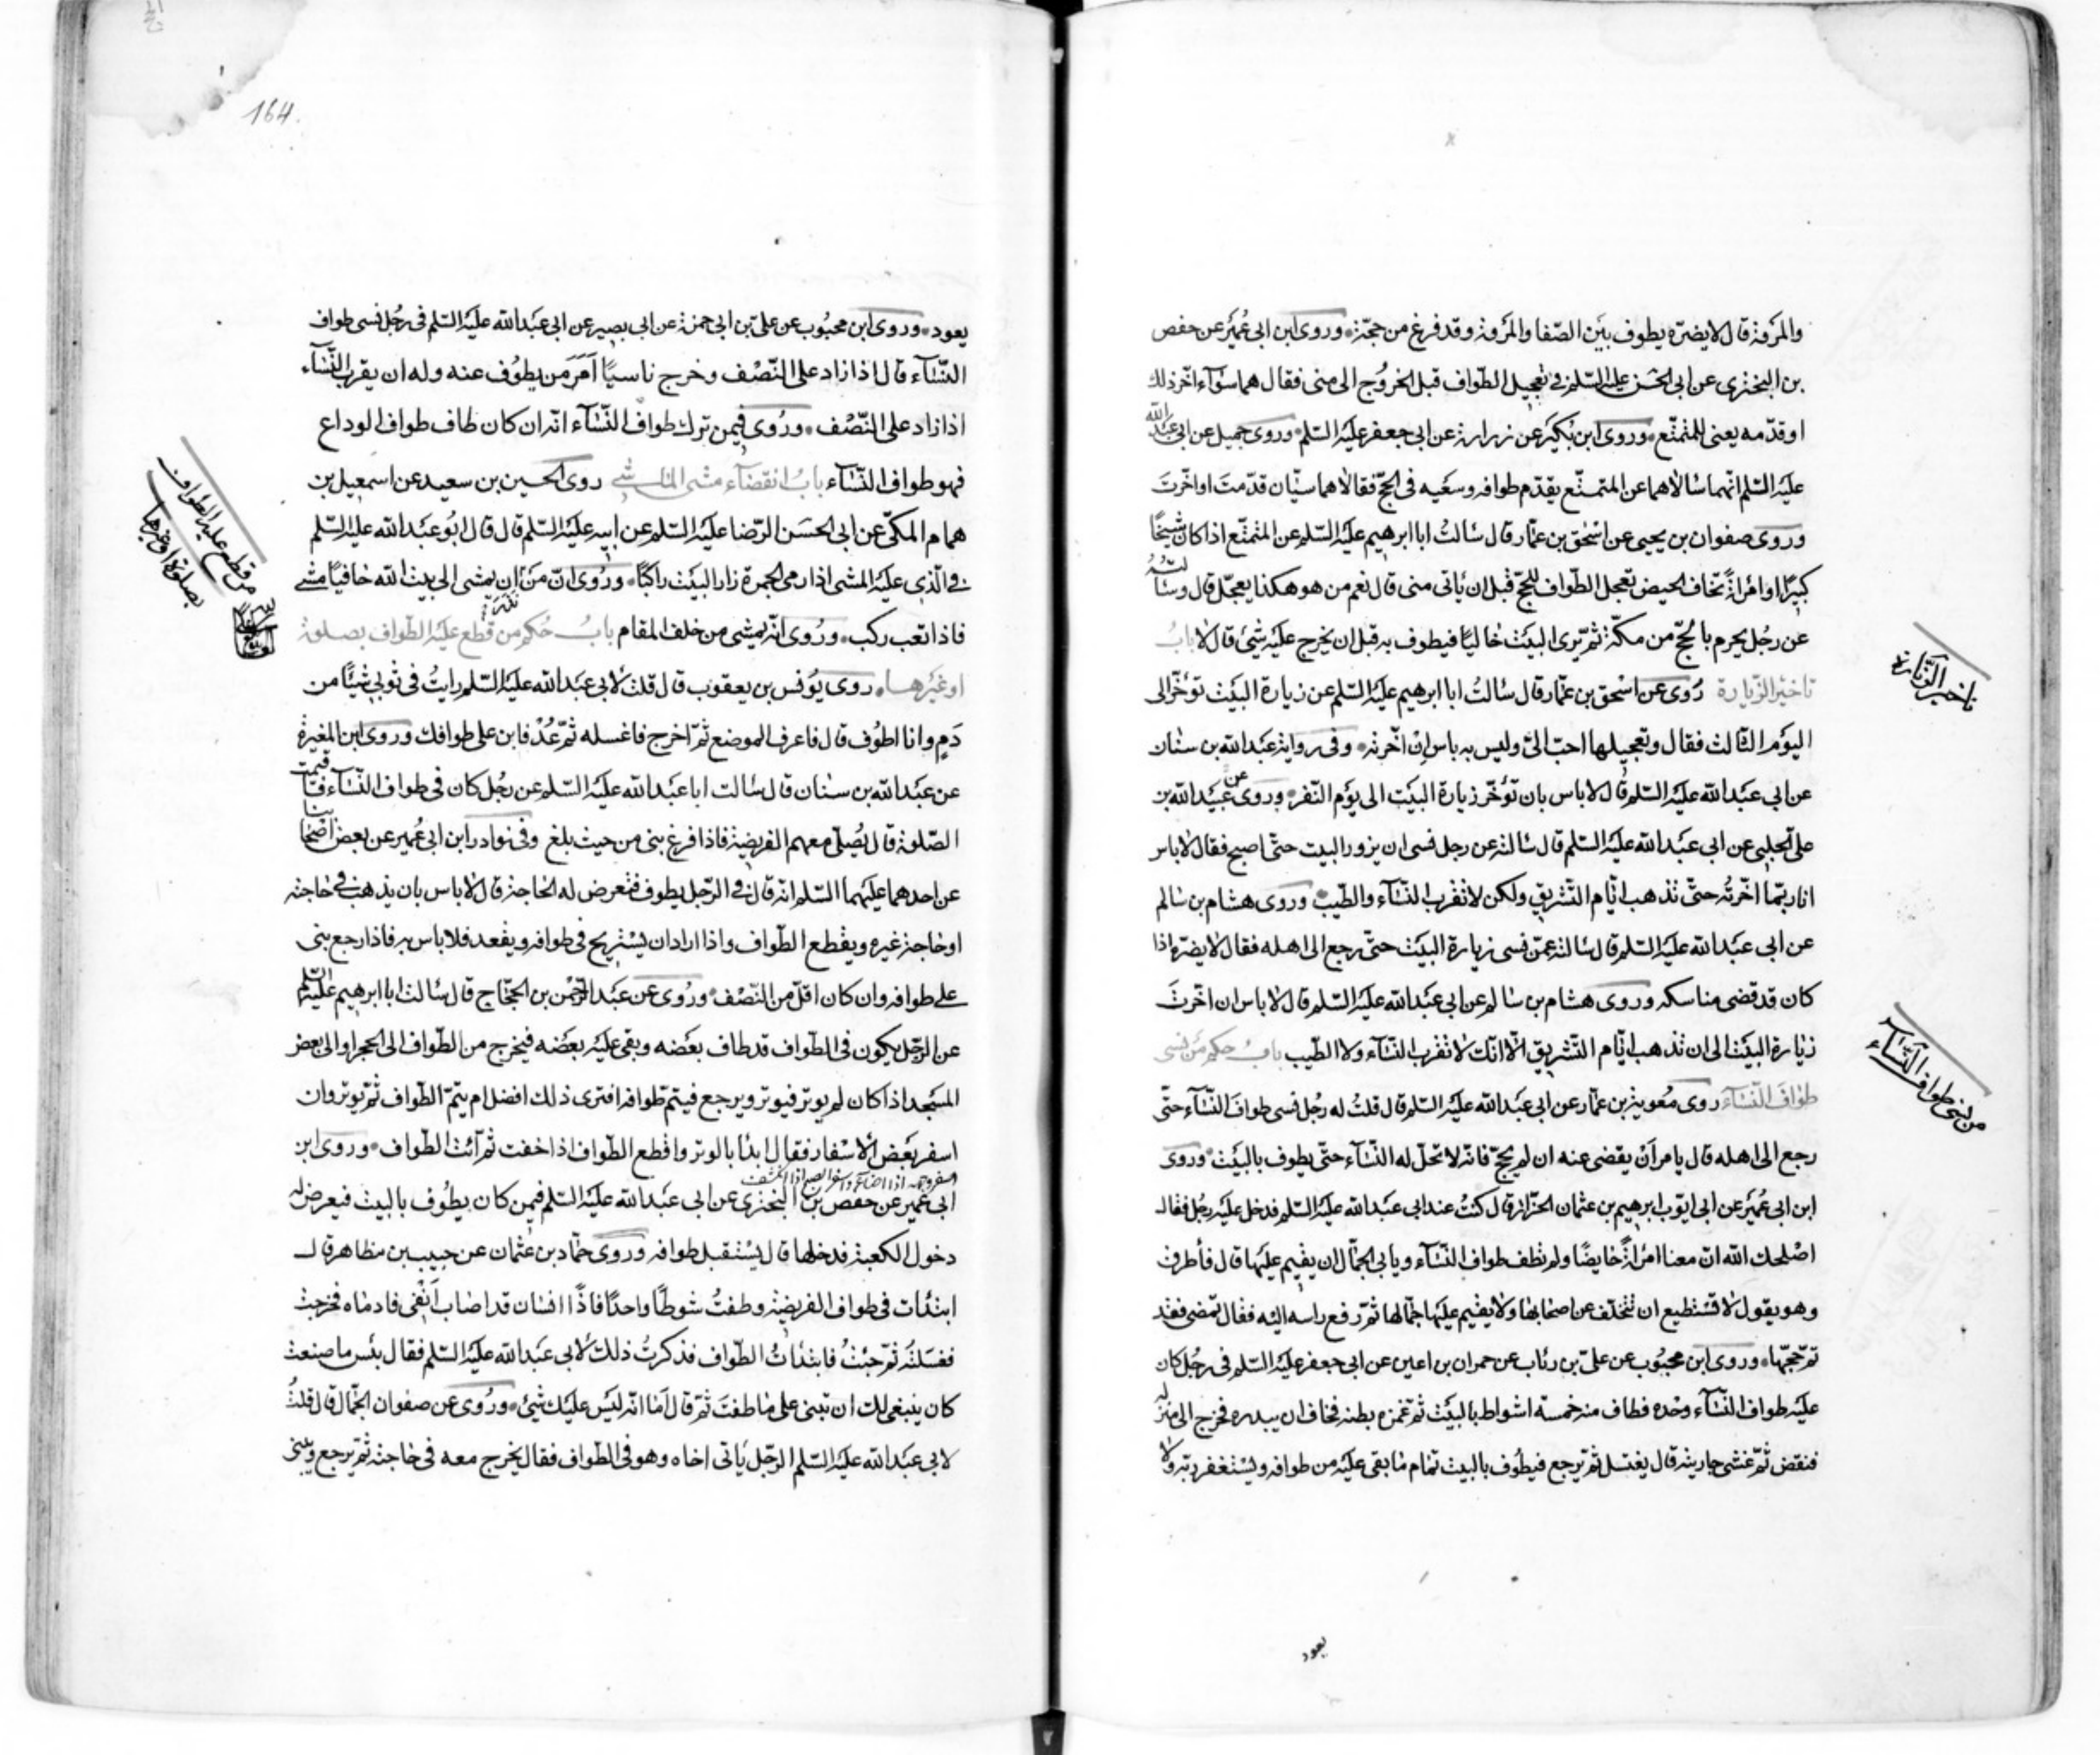 والمروة قال لا يضره يطوف بين الصفا والمروة وقد فرغ من حجّة وروى ابن ابى عُمير عن حفص
بن البخترى عن ابى الحسن عليه السّلم فى تعجيل الطواف قبل الخرُوج الى منى فقال هما سَوآء اخّر ذلك
او قدّمه يعنى للمتمتّع وروى ابن بُكير عن زرارة عن ابى جعفر عليه السّلم وروى جميل عن ابى عبد الله
عليه السّلم انّهما سالاهما عن المتمتّع يقدّم طوافه وسَعيه فى الحجّ فقالا هما سيّان قدّمتَ او اخّرتَ
وروى صفوان بن يحيى عن اسْحق بن عمّار قال سَالتُ ابا ابرهيم عليه السّلم عن المتمتّع اذا كان شيخًا
كبيرًا او امرَاةً تخاف الحيض تعجل الطّواف للحجّ قبل ان ياتى منى قال نعم من هو هكذا يعجّل قال وسَألتُهُ
عن رجُل يحرم بالحجّ من مكّة ثمّ يرى البيت خاليًا فيطوف به قبل ان يخرج عليه شئ قال لا بابُ
تاخير الزّيارة رُوى عن اسْحق بن عمّار قال سَالتُ ابا ابرهيم عليه السّلم عن زيارة البيت تؤخّر الى
اليوم الثالث فقال وتعجيلها احبّ الىّ وليس به باس اِنْ اخّرته وفى رواية عبد الله بن سنان
عن ابى عبد الله عليه السّلم قال لا باس بان تؤخّر زيارة البيت الى يوم النّفر وروى عن عبيد الله بن
علىّ الحلبى عن ابى عبد الله عليه السّلم قال سَالته عن رجل نسى ان يزور البيت حتّى اصبح فقال لا باس
انا ربّما اخّرتُه حتّى تذهب ايّام التّشريق ولكن لا تقرب النّسَآء والطّيب وروى هشام بن سالم
عن ابى عبد الله عليه السّلم قال سَالته عمّن نسى زيارة البيت حتّى رجع الى اهله فقال لا يضرّه اذا
كان قد قضى مناسكه وروى هشام بن سالم عن ابى عبد الله عليه السّلم قال لا باس ان اخّرتَ
زيارة البيت الى ان تذهب ايّام التّشريق الّا انّك لا تقرب النّسَآء ولا الطّيب بابُ حكم من نسى
طوافَ النّسَآء روى معوية بن عمّار عن ابى عبد الله عليه السّلم قال قلتُ له رجُل نسى طوافَ النّسَآء حتّى
رجع الى اهله قال يامر اَنْ يقضى عنه ان لم يحجّ فانّه لا تحلّ له النّسَآء حتّى يطوف بالبيت وروى
ابن ابى عُمير عن ابى ايّوب ابرهيم بن عثمان الخزّاز قال كنتُ عند ابى عبد الله عليه السّلم فدخل عليه رجُل فقال
اصْلحك الله انّ معنا امرَاةً حايضًا ولم تطف طواف النّسَآء ويابى الجمّال ان يقيم عليها قال فأطرق
وهو يقول لا تستطيع ان تتخلّف عن اصحابها ولا يقيم عليها جمّالها ثمّ رفع راسه اليه فقال تمضى فقد
تمّ حجّها وروى ابن محبُوب عن علىّ بن رئاب عن حمران بن اعين عن ابى جعفر عليه السّلم فى رجُل كان
عليه طواف النّسَآء وحْده فطاف منه خمسة اشواط بالبيت ثمّ غمزه بطنه فخاف ان يبدره فخرج الى منزله
فنقض ثمّ غشى جاريته قال يغتسل ثمّ يرجع فيطوف بالبيت تمام ما بقى عليه من طوافه ويستغفر ربّه ولا
تاخير الزّيارة
من نسى طواف النّسَآء
يعود
164.
يعود وروى ابن محبُوب عن علىّ بن ابى حمزة عن ابى بصير عن ابى عبد الله عليه السّلم فى رجُل نسى طواف
النّسَآء قال اذا زاد على النّصْف وخرج ناسيًا اَمَرَ من يطوُف عنه وله ان يقرب النّسَآء
اذا زاد على النّصْف ورُوى فيمن ترك طواف النّسَآء انّه ان كان طاف طواف الوداع
فهو طواف النّسَآء بابُ انقضآء مشى الماشى روى الحسين بن سعيد عن اسمعيل بن
همام المكّى عن ابى الحسَن الرّضا عليه السّلم عن ابيه عليه السّلم قال قال ابُو عبد الله عليه السّلم
فى الّذى عليه المشى اذا رمى الجمرة زار البيت راكبًا ورُوى انّ مَن نذر ان يمشى الى بيت الله حافيًا مشى
فاذا تعب ركب ورُوى انّه يمشى من خلف المقام بابُ حُكم من قطع عليه الطّواف بصلوة
او غيرها روى يوُنس بن يعقوب قال قلت لابى عبد الله عليه السّلم رايتُ فى ثوبى شيئًا من
دَمٍ وانا اطوُف قال فاعرف الموضع ثمّ اخرج فاغسله ثمّ عُدْ فابن على طوافك وروى ابن المغيرة
عن عبد الله بن سنان قال سَالت ابا عبد الله عليه السّلم عن رجُل كان فى طواف النّسَآء فاقيمت
الصّلوة قال يُصلّى معهم الفريضة فاذا فرغ بنى من حيث بلغ وفى نوادر ابن ابى عُمير عن بعض اصْحابنا
عن احدهما عليهما السّلم انّه قال فى الرّجل يطوف فتعرض له الحاجة قال لا باس بان يذهب فى حاجته
او حاجة غيره ويقطع الطّواف واذا اراد ان يسْتريح فى طوافه ويقعد فلا باس به فاذا رجع بنى
على طوافه وان كان اقلّ من النّصْف ورُوى عن عبد الرّحمْن بن الحجّاج قال سَالت ابا ابرهيم عليه السّلم
عن الرّجل يكون فى الطّواف قد طاف بعضه وبقى عليه بعضه فيخرج من الطّواف الى الحجر او الى بعض
المسَجد اذا كان لم يوتر فيوتر ويرجع فيتمّ طوافه افترى ذلك افضل ام يتمّ الطّواف ثمّ يوتر وان
اسفر بعض الاسْفار فقال ابدَأ بالوتر واقطع الطّواف اذا خفت ثم ائت الطّواف وروى ابن
ابى عُمير عن حفص بن البخترى عن ابى عبد الله عليه السّلم فيمن كان يطوُف بالبيت فيعرض له
دخول الكعبة فدخلها قال يسْتقبل طوافه وروى حمّاد بن عثمان عن حبيب بن مظاهر قال
ابتدَأت فى طواف الفريضة وطفتُ شوطًا واحدًا فاذًا انسان قد اصَاب اَنْفى فادماه فخرجت
فغسَلته ثمّ جئتُ فابتدَأتُ الطّواف فذكرتُ ذلك لابى عبد الله عليه السّلم فقال بئس ما صنعت
كان ينبغى لك ان تبنى على ما طفتَ ثمّ قال اَمَا انّه ليَس عليك شئ ورُوى عن صفوان الجمّال قال قلتُ
لابى عبد الله عليه السّلم الرّجل ياتى اخاه وهو فى الطّواف فقال يخرج معه فى حاجته ثمّ يرجع ويبنى
من قطع عليه الطواف
بصلوة او غيرها